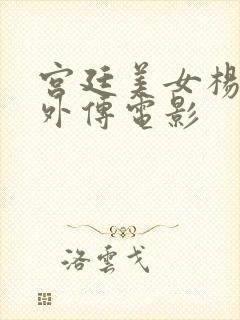 宫廷美女楊
外傳電影
洛雲戈